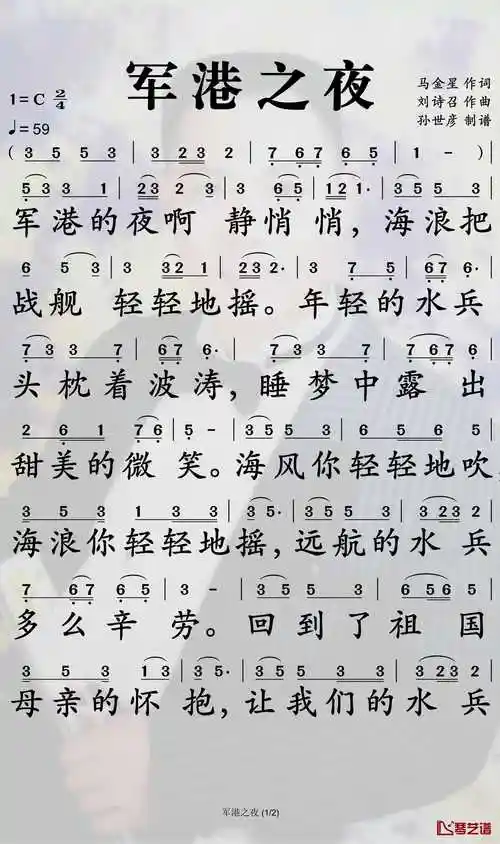 军港之夜
马金星 作词
刘诗召 作曲
孙世彦 制谱
1=C 2/4
♩=59
( 3 5 5 3 | 3 2 3 2 | 7 6 7 6 5 | 1 - ) |
5 3 3 1 | 2 3 2 3 | 3 6 5 | 1 2 1· | 3 5 5 3
军港的夜啊 静悄悄，海浪把
6 5 3 | 3 3 2 1 | 2 3 2· | 3 7 5 | 6 7 6·
战舰 轻轻地摇。年轻的水兵
7 3 3 7 | 6 7 6· | 7 3 3 7 | 7 6 7 6
头枕着波涛，睡梦中露出
2 6 1 7 6 | 5 - | 3 5 5 3 3
甜美的微笑。海风你轻轻地吹，
3 5 3 1 3 3
海浪你轻轻地摇，远航的水兵
7 6 7 6 5 | 3 - | 3 5 5 3 | 6 5 6 5
多么辛劳。回到了祖国
3 5 5 1 3 | 5· | 3 5 5 3 3 | 3 2 3 2
母亲的怀抱，让我们的水兵
军港之夜 (1/2)
琴艺谱